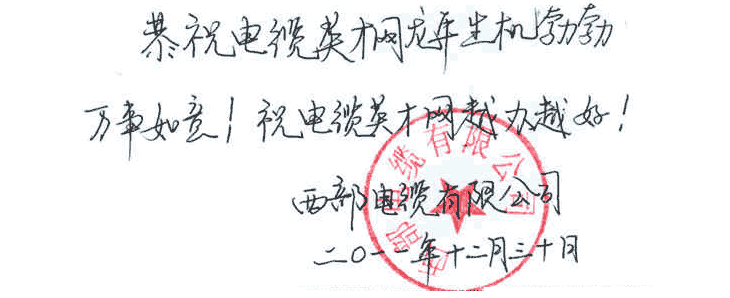 恭祝电缆英才网龙年生机勃勃
万事如意！祝电缆英才网越办越好！
西部电缆有限公司
二〇一一年十二月三十日
西部电缆有限公司